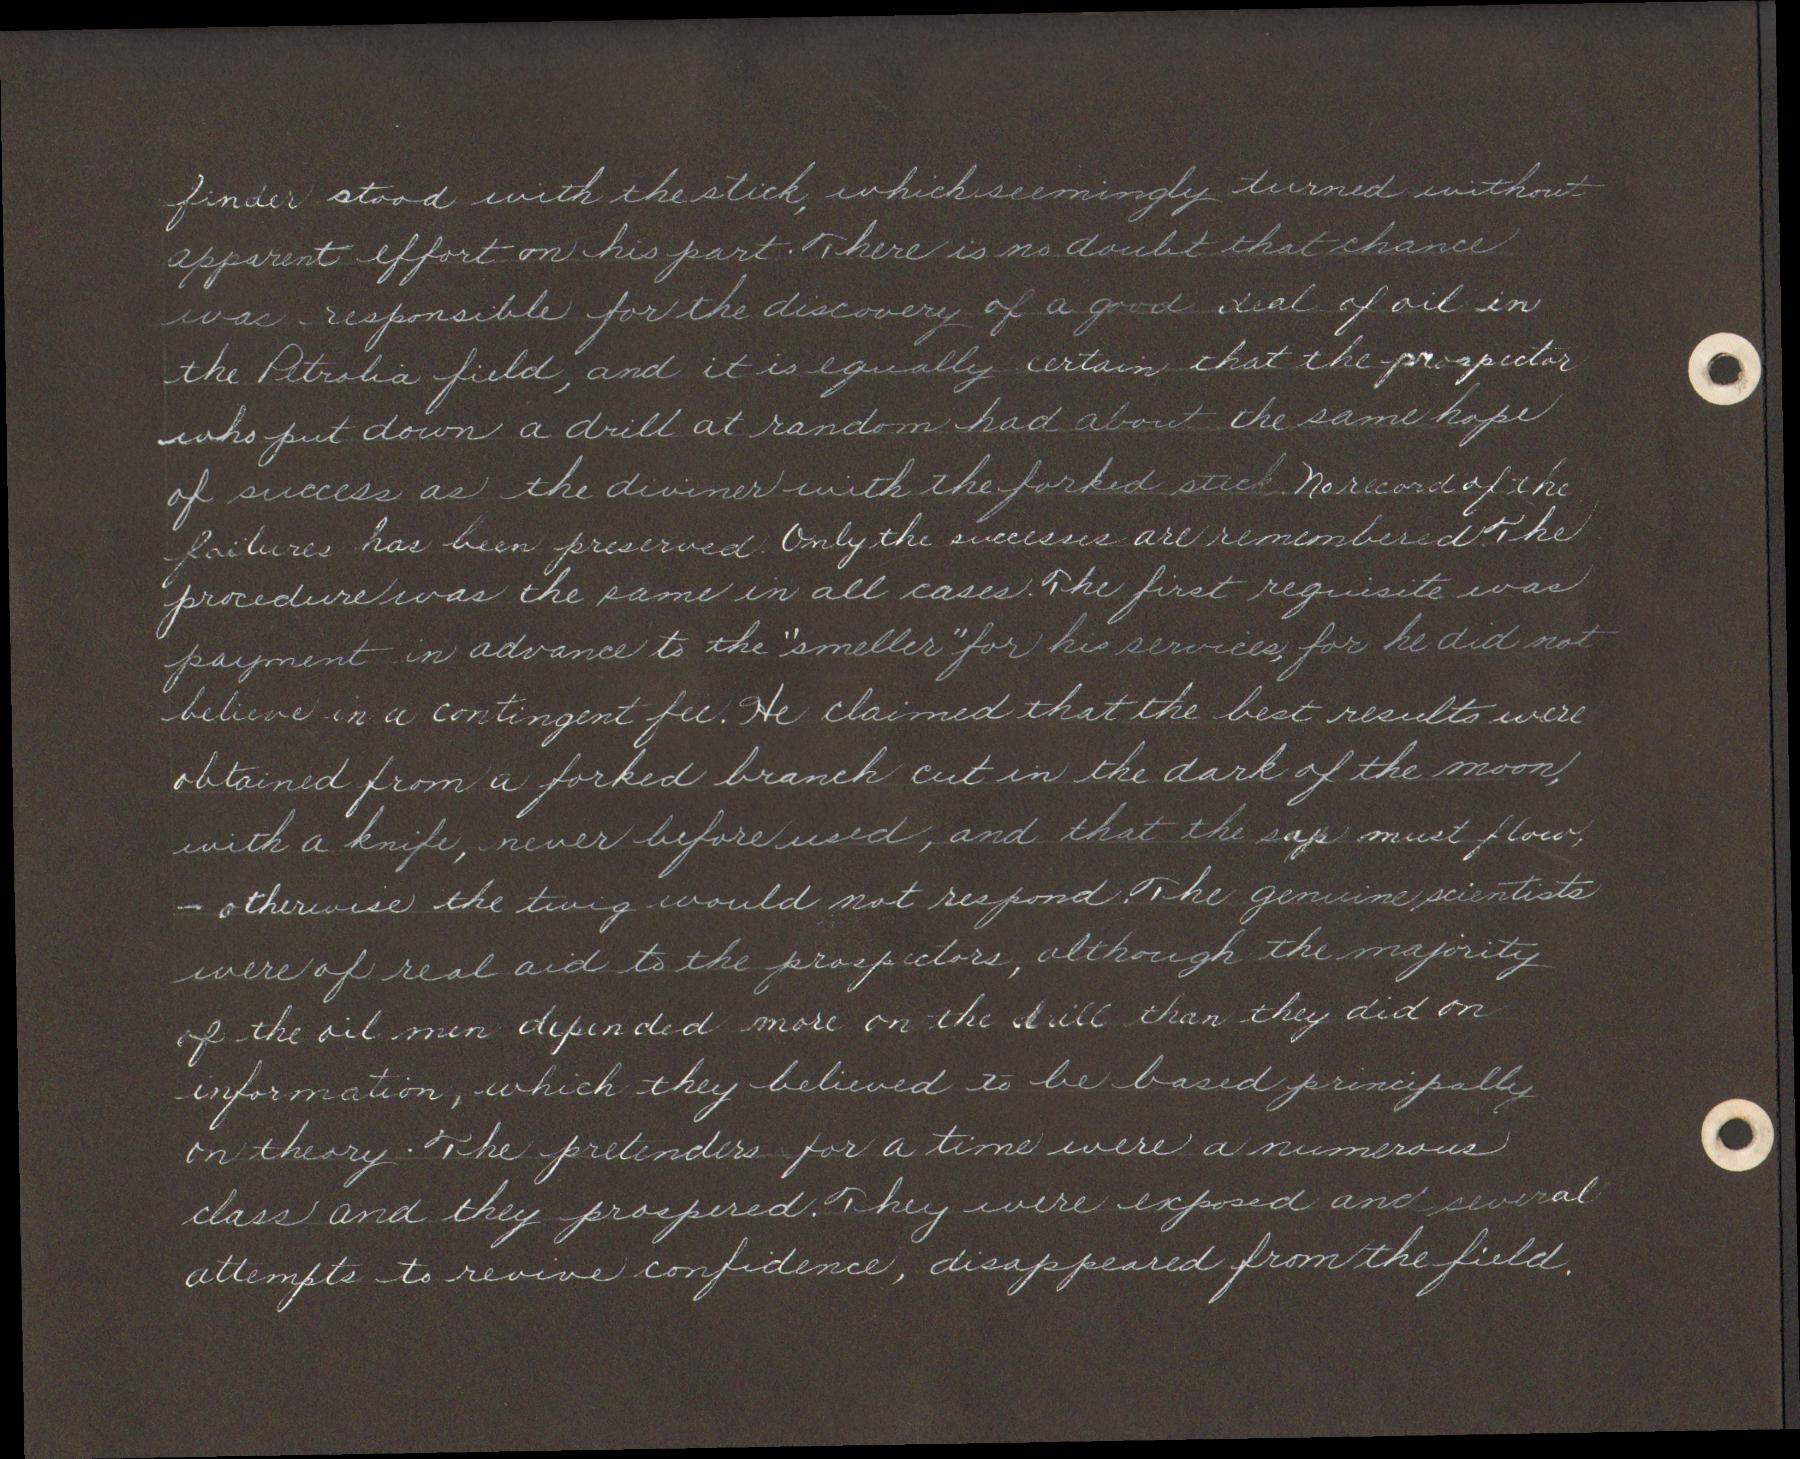 finder stood with the stick, which seemingly turned without
apparent effort on his part. There is no doubt that chance
was responsible for the discovery of a good deal of oil in
the Petrolia field, and it is equally certain that the prospector
who put down a drill at random had about the same hope
of success as the diviner with the forked stick. No record of the
failures has been preserved. Only the successes are remembered. The
procedure was the same in all cases. The first requisite was
payment in advance to the "smeller" for his services, for he did not
believe in a contingent fee. He claimed that the best results were
obtained from a forked branch cut in the dark of the moon,
with a knife, never before used, and that the sap must flow,
- otherwise the twig would not respond. The genuine scientists
were of real aid to the prospectors, although the majority
of the oil men depended more on the drill than they did on
information, which they believed to be based principally
on theory. The pretenders for a time were a numerous
class and they prospered. They were exposed and several
attempts to revive confidence, disappeared from the field.